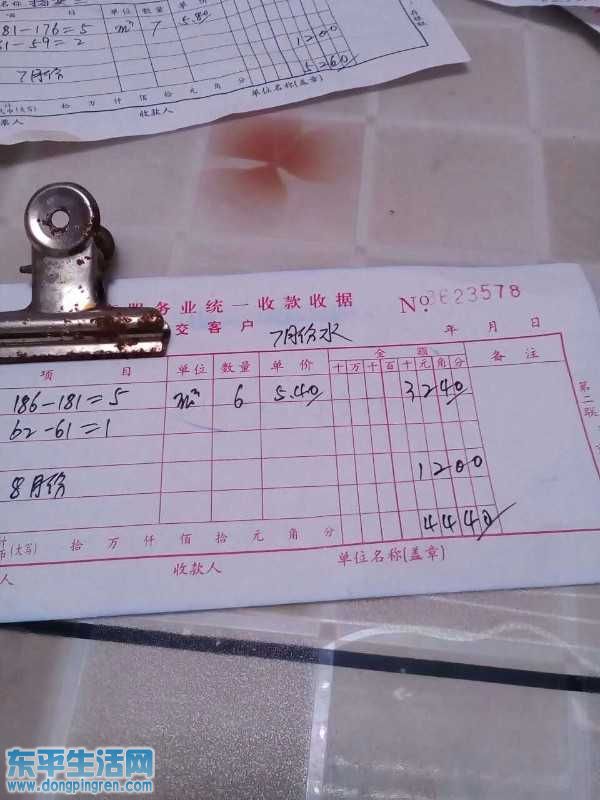 181-176=5 m³ 7 5.80
61-59=2
1200
7月份 5260
拾 万 仟 佰 拾 元 角 分
收款人 单位名称(盖章)
务业统一收款收据 No.3623578
交客户 7月份水 年 月 日
项 目 单位 数量 单价 金额 备注
十 万 千 百 十 元 角 分
186-181=5 m³ 6 5.40 3240
62-61=1
第二联
8月份 1200
4440
(大写) 拾 万 仟 佰 拾 元 角 分
人 收款人 单位名称(盖章)
东平生活网
www.dongpingren.com